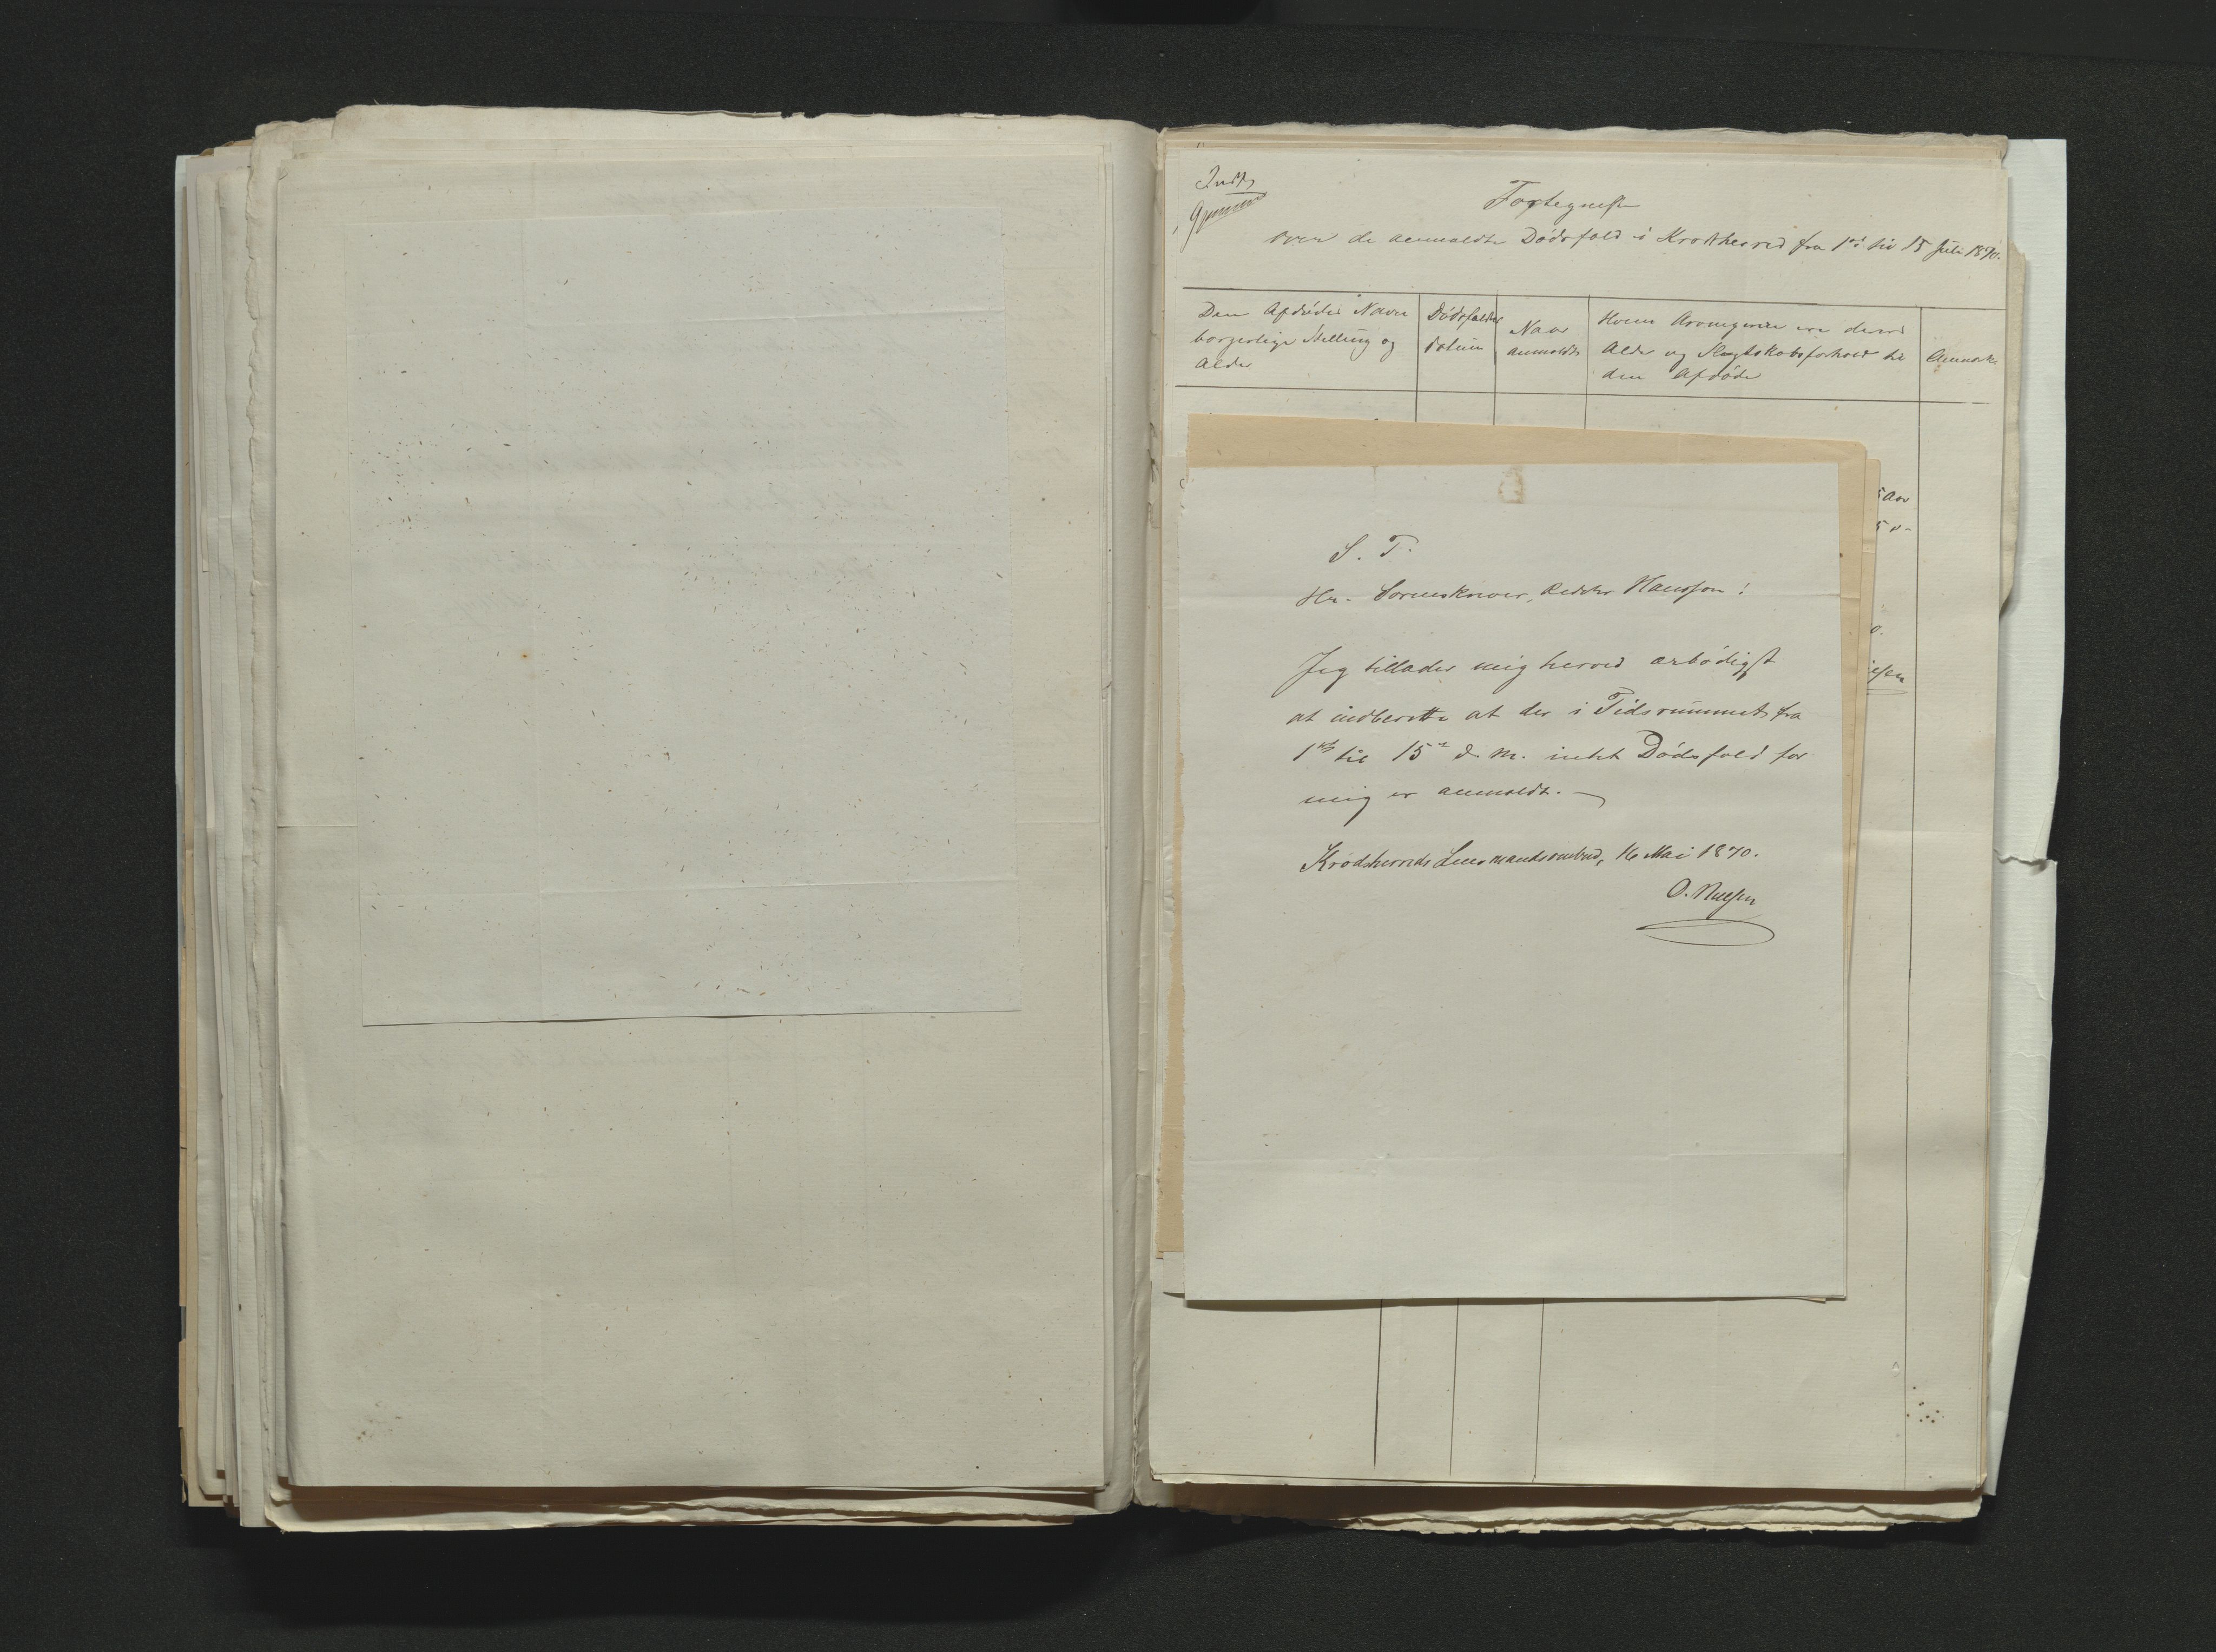 Indt,
Fortegnelse
over de anmeldte Dødsfald i Krødsherred fra 1ste til 15 Juli 1870.
Den Afdødes Navn
borgerlige Stilling og
Alder
Dødsfaldets
datum
Naar
anmeldt
Hvem Arvingerne ere deres
Alder og Slægtskabsforhold til
den Afdøde
Anmærk
5 Aar
5 "-
S. T.
Hr. Sorenskriver, Ridder Hansson!
Jeg tillader mig herved ærbødigst
at indberette at der i Tidsrummet fra
1ste til 15de d. M. intet Dødsfald for
mig er anmeldt.
Krødsherreds Lensmandsombud, 16 Mai 1870.